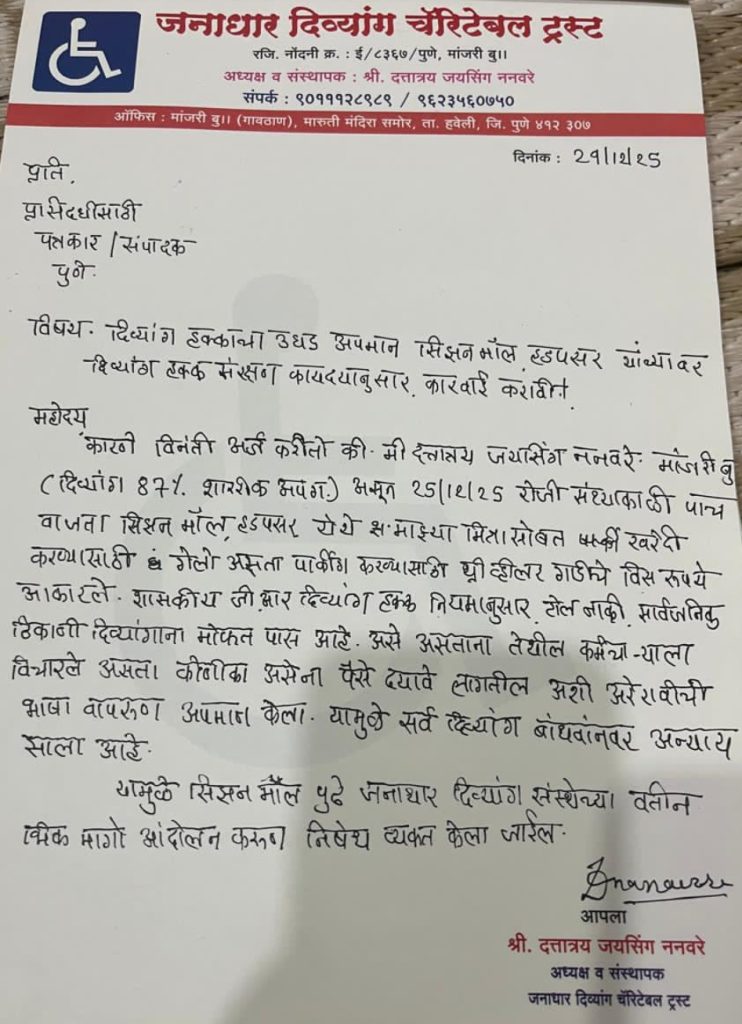 जनाधार दिव्यांग चॅरिटेबल ट्रस्ट
रजि. नोंदनी क्र. : ई/८३६७/पुणे, मांजरी बु॥
अध्यक्ष व संस्थापक : श्री. दत्तात्रय जयसिंग ननवरे
संपर्क : ९०१११२८९८९ / ९६२३५६०७५०
ऑफिस : मांजरी बु॥ (गावठाण), मारुती मंदिरा समोर, ता. हवेली, जि. पुणे ४१२ ३०७
दिनांक : 29/12/25
प्रति,
प्रसिदधीसाठी
पत्रकार / संपादक
पुणे.
विषय. दिव्यांग हक्काचा उघड अपमान सिझन मॉल, हडपसर यांच्यावर
दिव्यांग हक्क संरक्षण कायदयानुसार, कारवाई करावी.
महोदय
कारणे विनंती अर्ज करीतो की. मी दत्तात्रय जयसिंग ननवरे. मांजरी बु
(दिव्यांग 87% शारीरिक अपंग.) असून 25/12/25 रोजी संध्याकाळी पाच
वाजता सिझन मॉल, हडपसर येथे माझ्या मित्रासोबत खरेदी
करण्यासाठी गेलो असता पार्किंग करण्यासाठी थ्री व्हीलर गाडीचे विस रुपये
आकारले. शासकीय जी आर दिव्यांग हक्क नियमानुसार, टोल नाकी, सार्वजनिक
ठिकाणी दिव्यांगाना मोफत पास आहे. असे असताना तेथील कर्मचा-याला
विचारले असता कोणीका असेना पैसे दयावे लागतील अशी अरेरावीची
भाषा वापरुण अपमान केला. यामुळे सर्व दिव्यांग बांधवांनवर अन्याय
झाला आहे.
यामुळे सिझन मॉल पुढे जनाधार दिव्यांग संस्थेच्या वतीन
भिक मागो आंदोलन करुण निषेध व्यक्त केला जाईल.
आपला
श्री. दत्तात्रय जयसिंग ननवरे
अध्यक्ष व संस्थापक
जनाधार दिव्यांग चॅरिटेबल ट्रस्ट